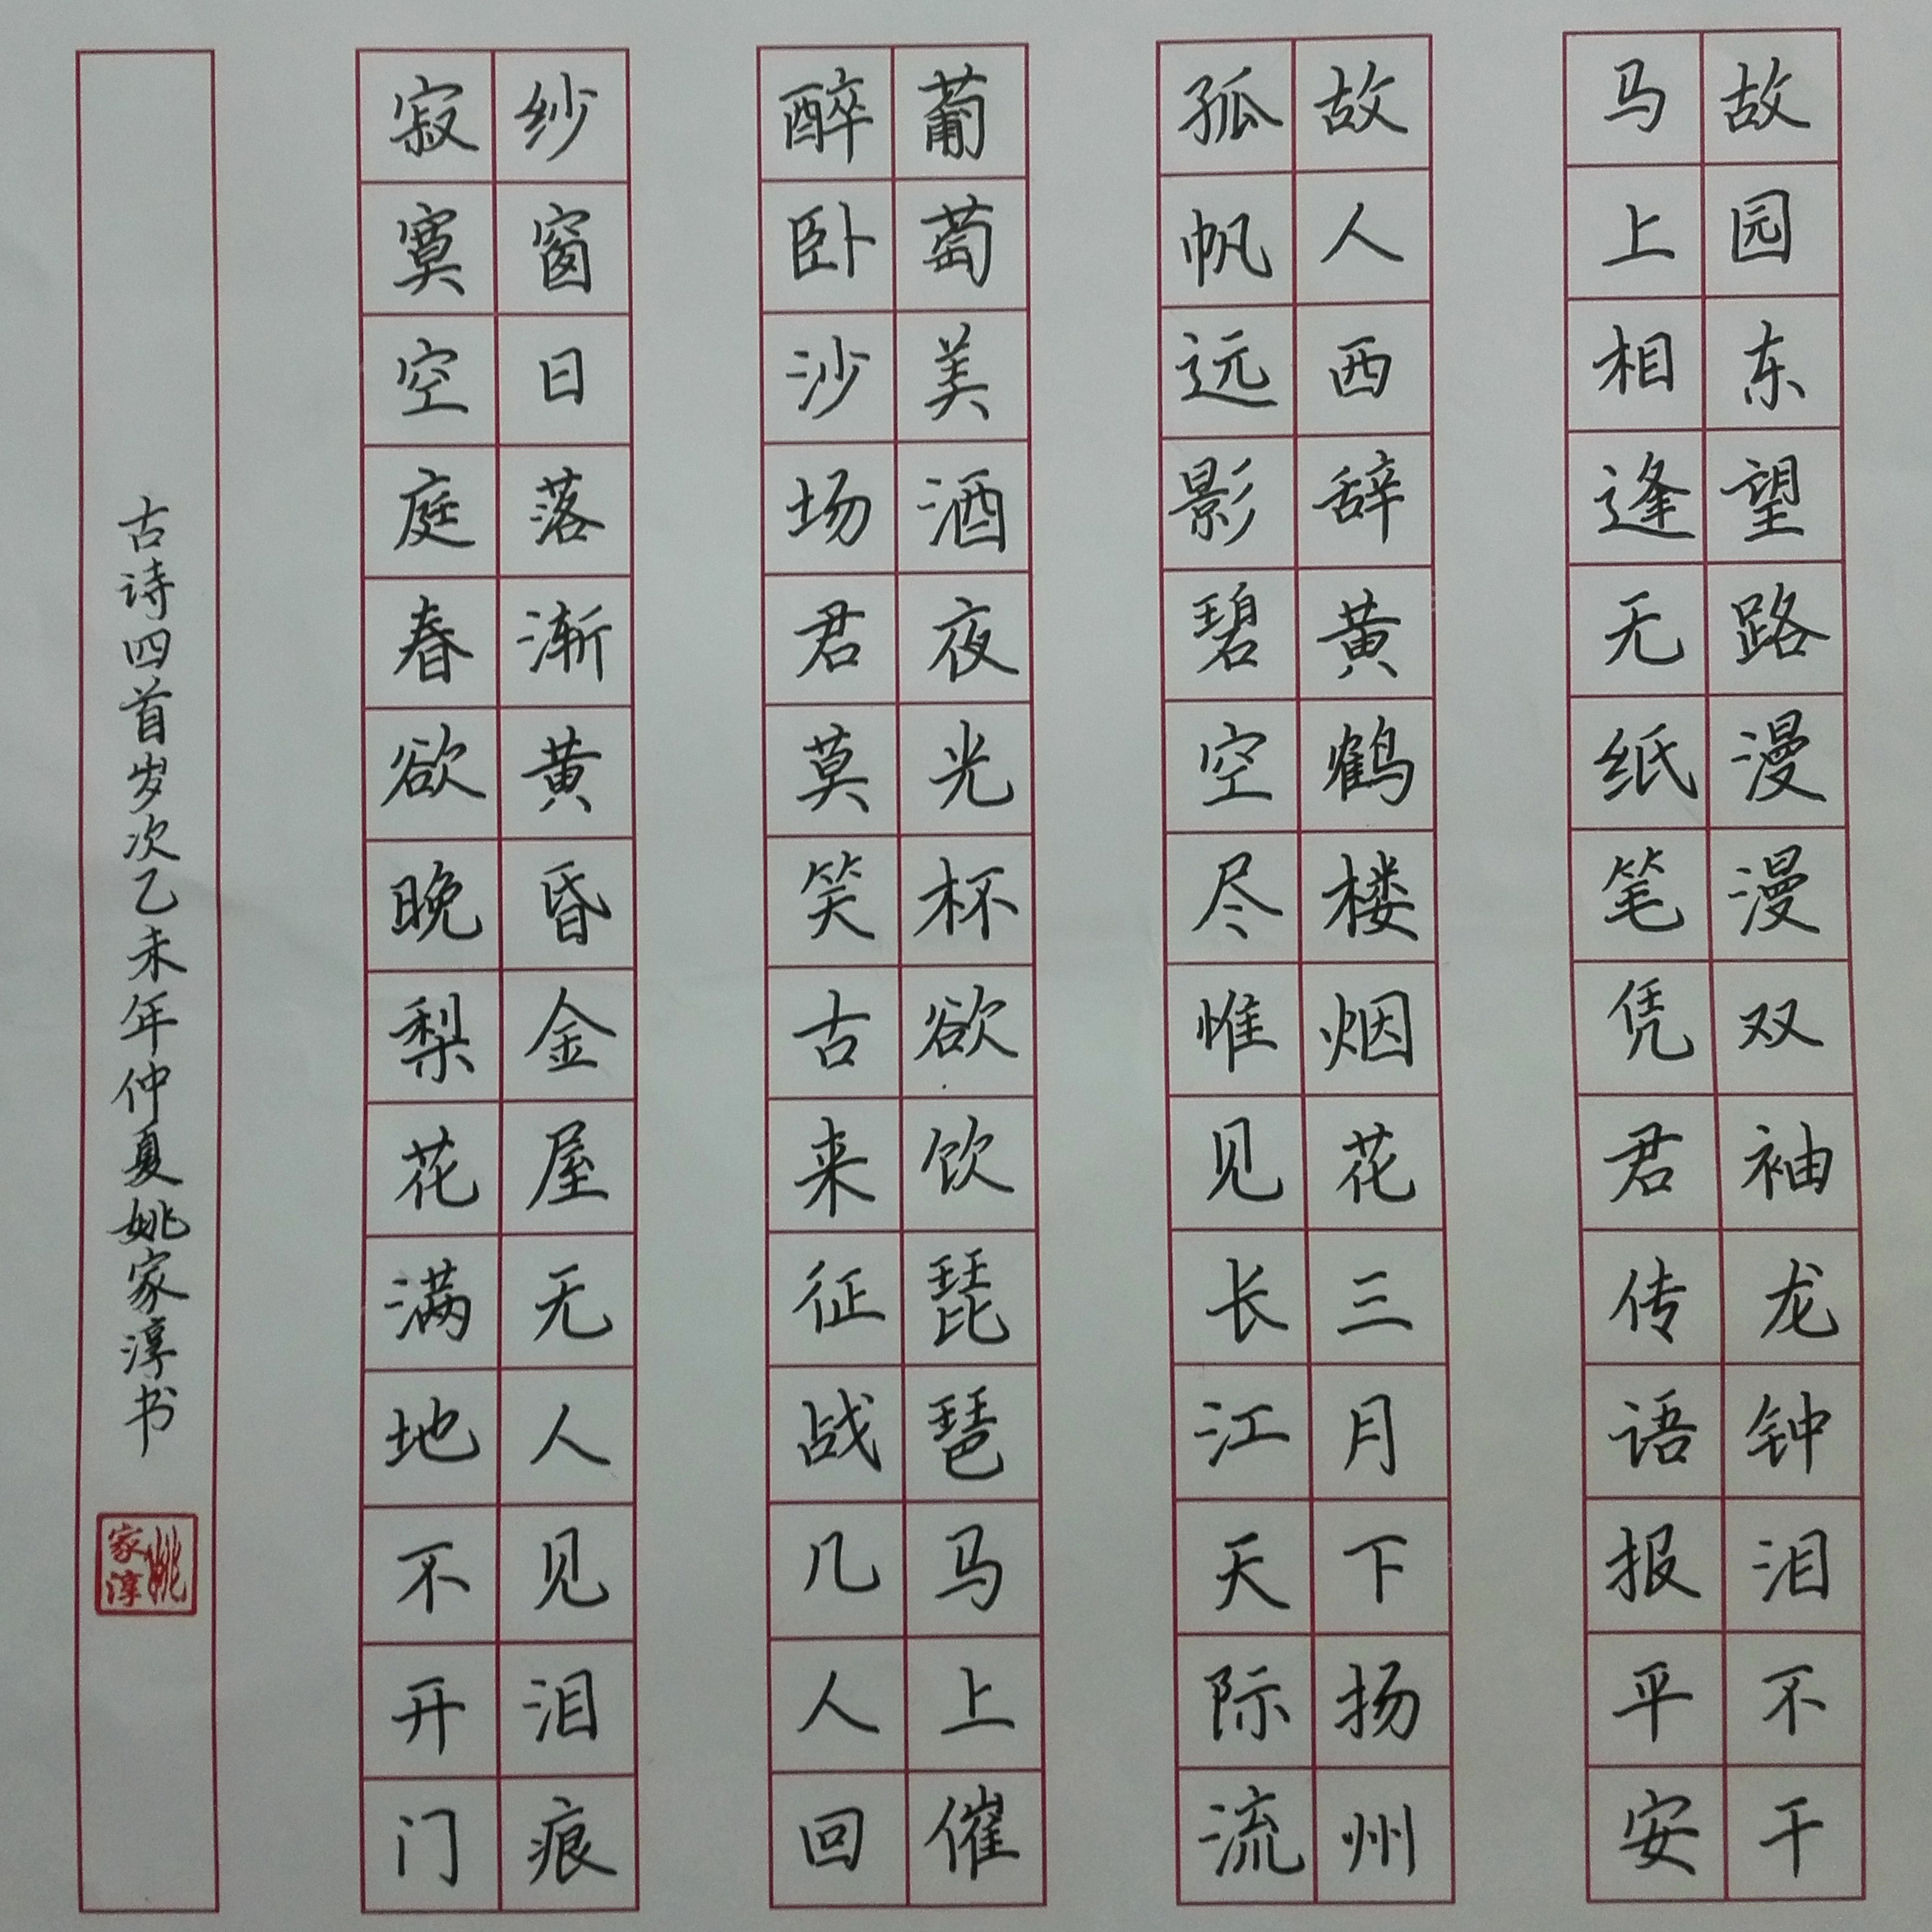 故园东望路漫漫双袖龙钟泪不干
马上相逢无纸笔凭君传语报平安
故人西辞黄鹤楼烟花三月下扬州
孤帆远影碧空尽惟见长江天际流
葡萄美酒夜光杯欲饮琵琶马上催
醉卧沙场君莫笑古来征战几人回
纱窗日落渐黄昏金屋无人见泪痕
寂寞空庭春欲晚梨花满地不开门
古诗四首岁次乙未年仲夏姚家淳书
姚家淳